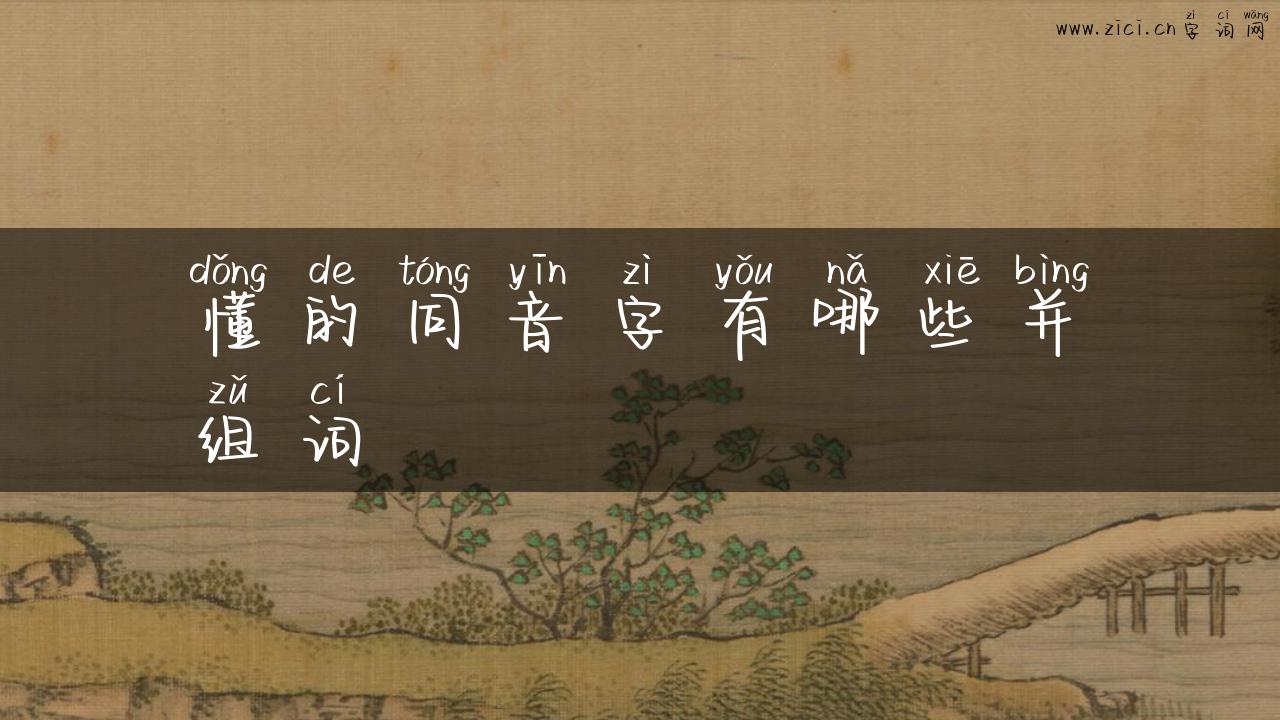 zì cí wǎng
www.zici.cn 字词网
dǒng de tóng yīn zì yǒu nǎ xiē bìng
懂的同音字有哪些并
zǔ cí
组词